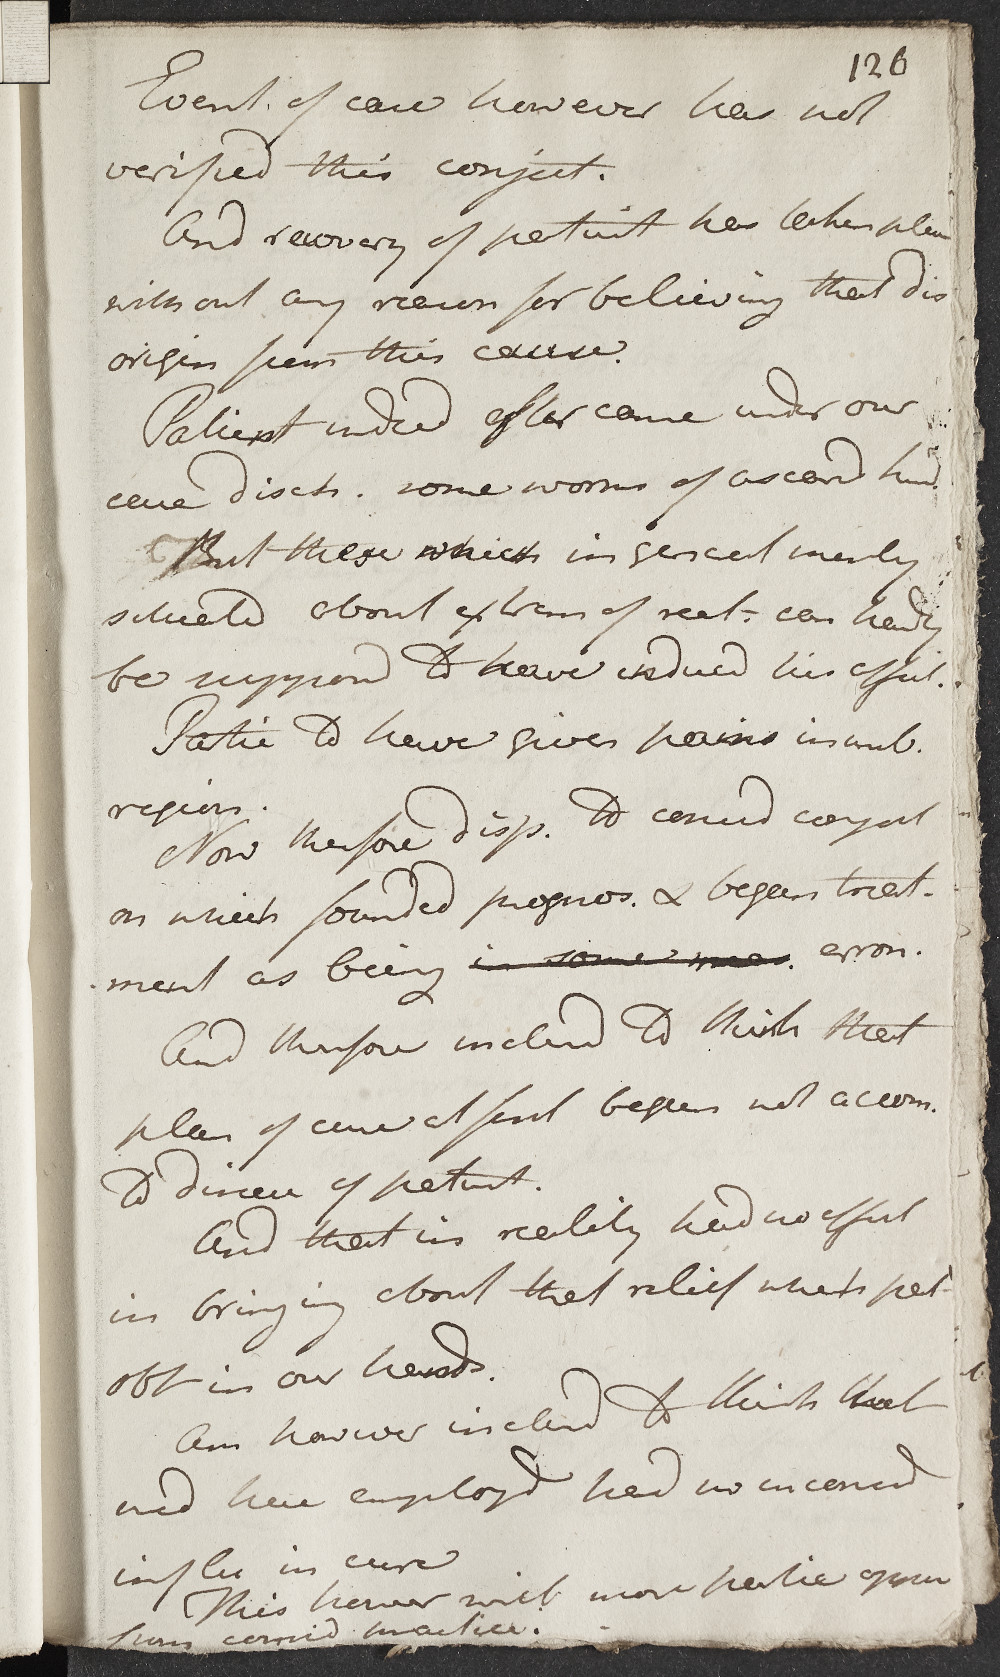 126
Event. of case however has not
verified this conject.
And recovery of patient has taken place
without any reason for believing that dis
origin from this cause.
Patient indeed after came under our
care disch. some worms of ascarid kind
But these which in general merly
situated about extrem of rect. can hardly
be supposed to have induced his affect.
Partic to have given pains in umb.
region.
Now therefore disp. to consid conject
on which founded prognos. & began treat-
ment as being in some meas. erron.
And therefore inclend to think that
plan of cure at first began not accom.
to disease of patient.
And that in reality had no effect
in bringing about that relief which pat
obt in our hands.
Am however inclend to think that
med here employd had no inconsid
influ in cure
This howver will more partic appear
from consid practice.